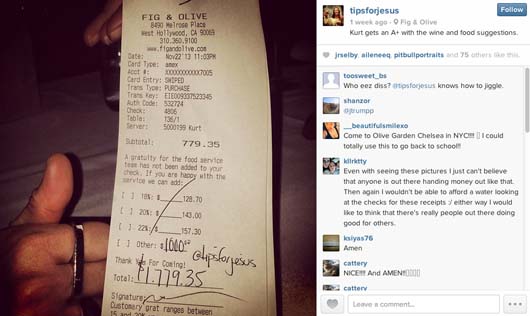 FIG & OLIVE
8490 Melrose Place
West Hollywood, CA 90069
310.360.9100
www.figandolive.com
Date: Nov22'13 11:03PM
Card Type: amex
Acct #: XXXXXXXXXXX7005
Card Entry: SWIPED
Trans Type: PURCHASE
Trans Key: EIE009337523345
Auth Code: 532724
Check: 4806
Table: 136/1
Server: 5000199 Kurt
Subtotal: 779.35
A gratuity for the food service
team has not been added to your
check. If you are happy with the
service we can add:
[ ] 18%: $ 128.70
[ ] 20%: $ 143.00
[ ] 22%: $ 157.30
[ ] Other: $
@tipsforjesus
Thank You For Coming!
Total: $1,779.35
Signature:
Customary grat ranges between
15 and 20%
tipsforjesus
Follow
1 week ago · Fig & Olive
Kurt gets an A+ with the wine and food suggestions.
jrselby, aileneeq, pitbullportraits and 75 others like this.
toosweet_bs
Who eez diss? @tipsforjesus knows how to jiggle.
shanzor
@jtrumpp
__beautifulsmilexo
Come to Olive Garden Chelsea in NYC!!!! I could
totally use this to go back to school!!
kllrktty
Even with seeing these pictures I just can't believe
that anyone is out there handing money out like that.
Then again I wouldn't be able to afford a water looking
at the checks for these receipts :/ either way I would
like to think that there's really people out there doing
good for others.
ksiyas76
Amen
cattery
NICE!!!! And AMEN!!
cattery
Leave a comment...